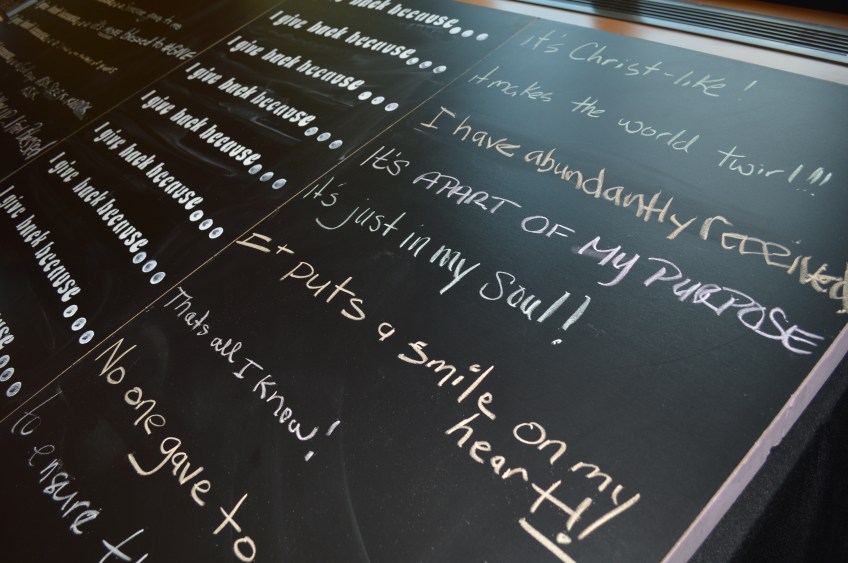 back because... it's Christ-like!
I give back because... it makes the world twirl!!!
I give back because... I have abundantly received
I give back because... It's APART OF MY PURPOSE
I give back because... It's just in my soul!
I give back because... It puts a smile on my
heart!
I give back because... Thats all I know!
I give back because... No one gave to
to ensure